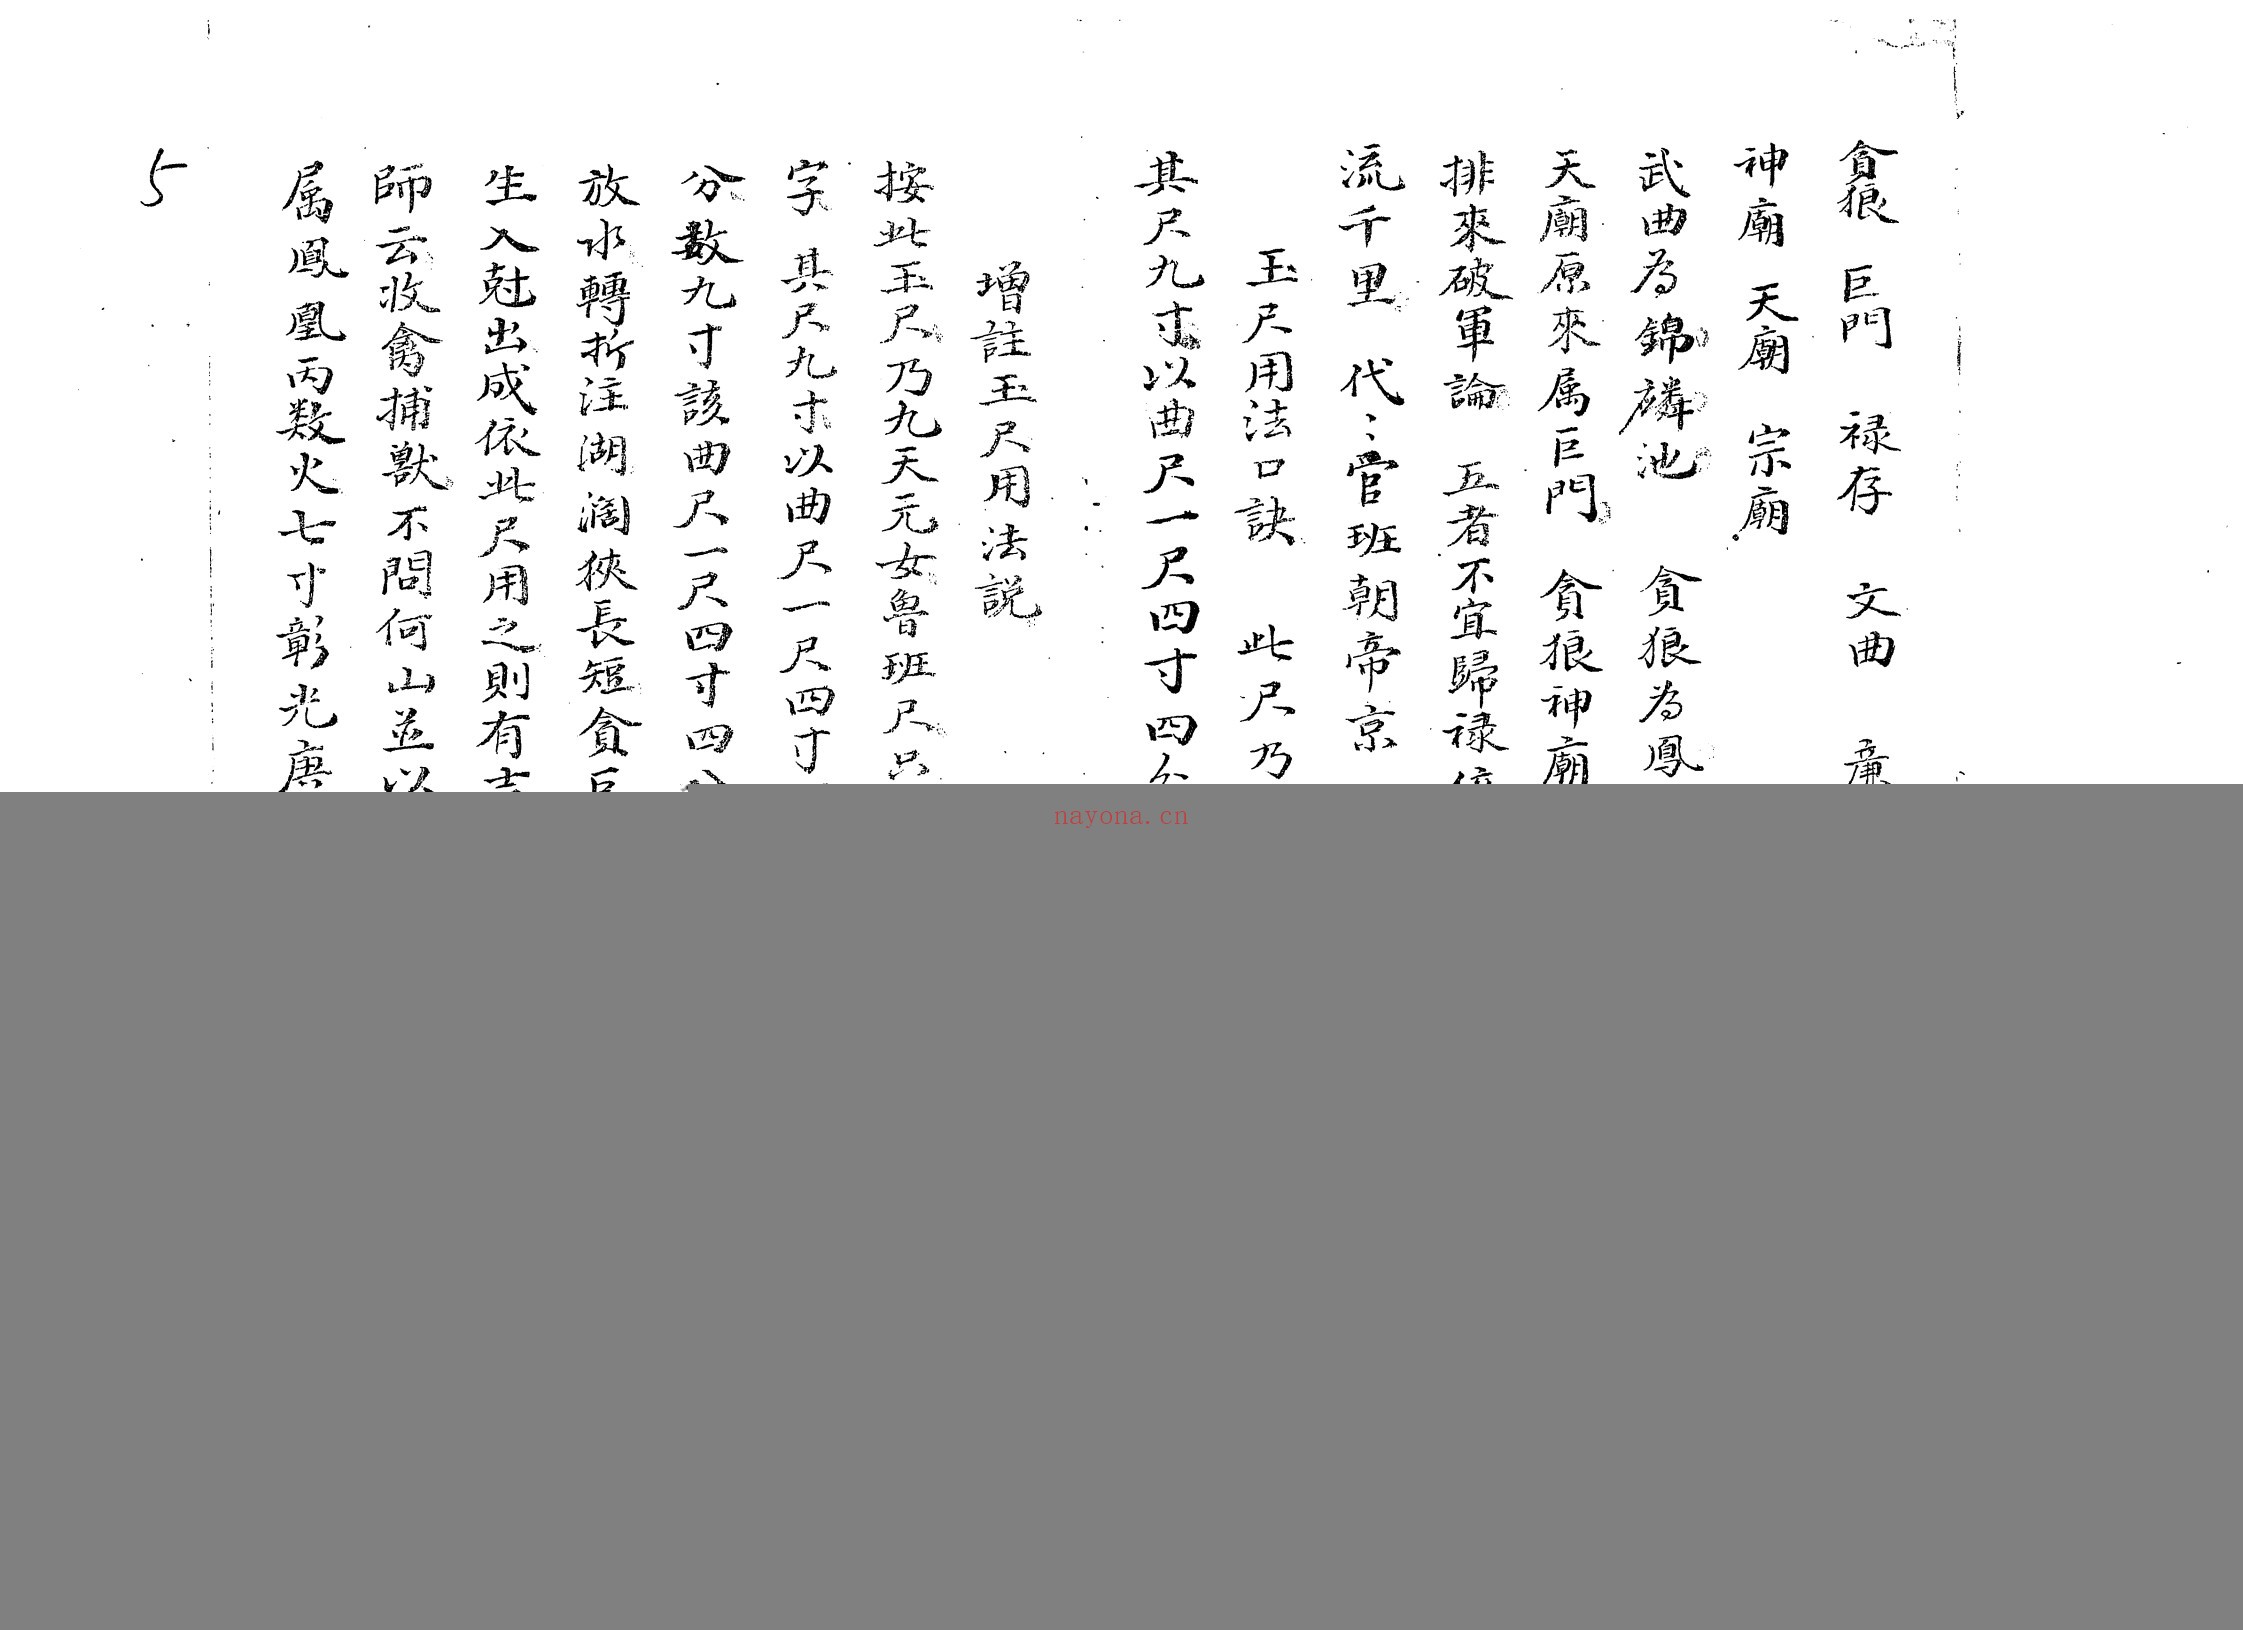 貪狼 巨門 禄存 文曲 廉
神廟 天廟 宗廟
武曲為錦麟池 貪狼為鳳
天廟原來属巨門 貪狼神廟
排來破軍論 五者不宜歸禄
流千里 代〻管班朝帝京
玉尺用法口訣 此尺乃
其尺九寸以曲尺一尺四寸四分
增註玉尺用法説
按此玉尺乃九天元女魯班尺只
字 其尺九寸以曲尺一尺四寸
分数九寸該曲尺一尺四寸四分
放水轉折注湖濶狹長短貪巨
生入尅出成依此尺用之則有吉
師云收禽捕獸不問何山並以
属鳳凰丙数火七寸彰光唐
5
nayona.cn